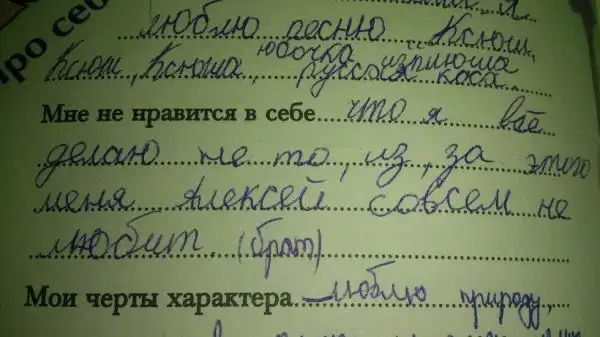 про себ
люблю песню Ксюш,
Ксюш, Ксюша, юбочка из плюша
русская коса..
Мне не нравится в себе... что я всё
делаю не то, из, за этого
меня Алексей совсем не
любит. (брат)
Мои черты характера... люблю природу,